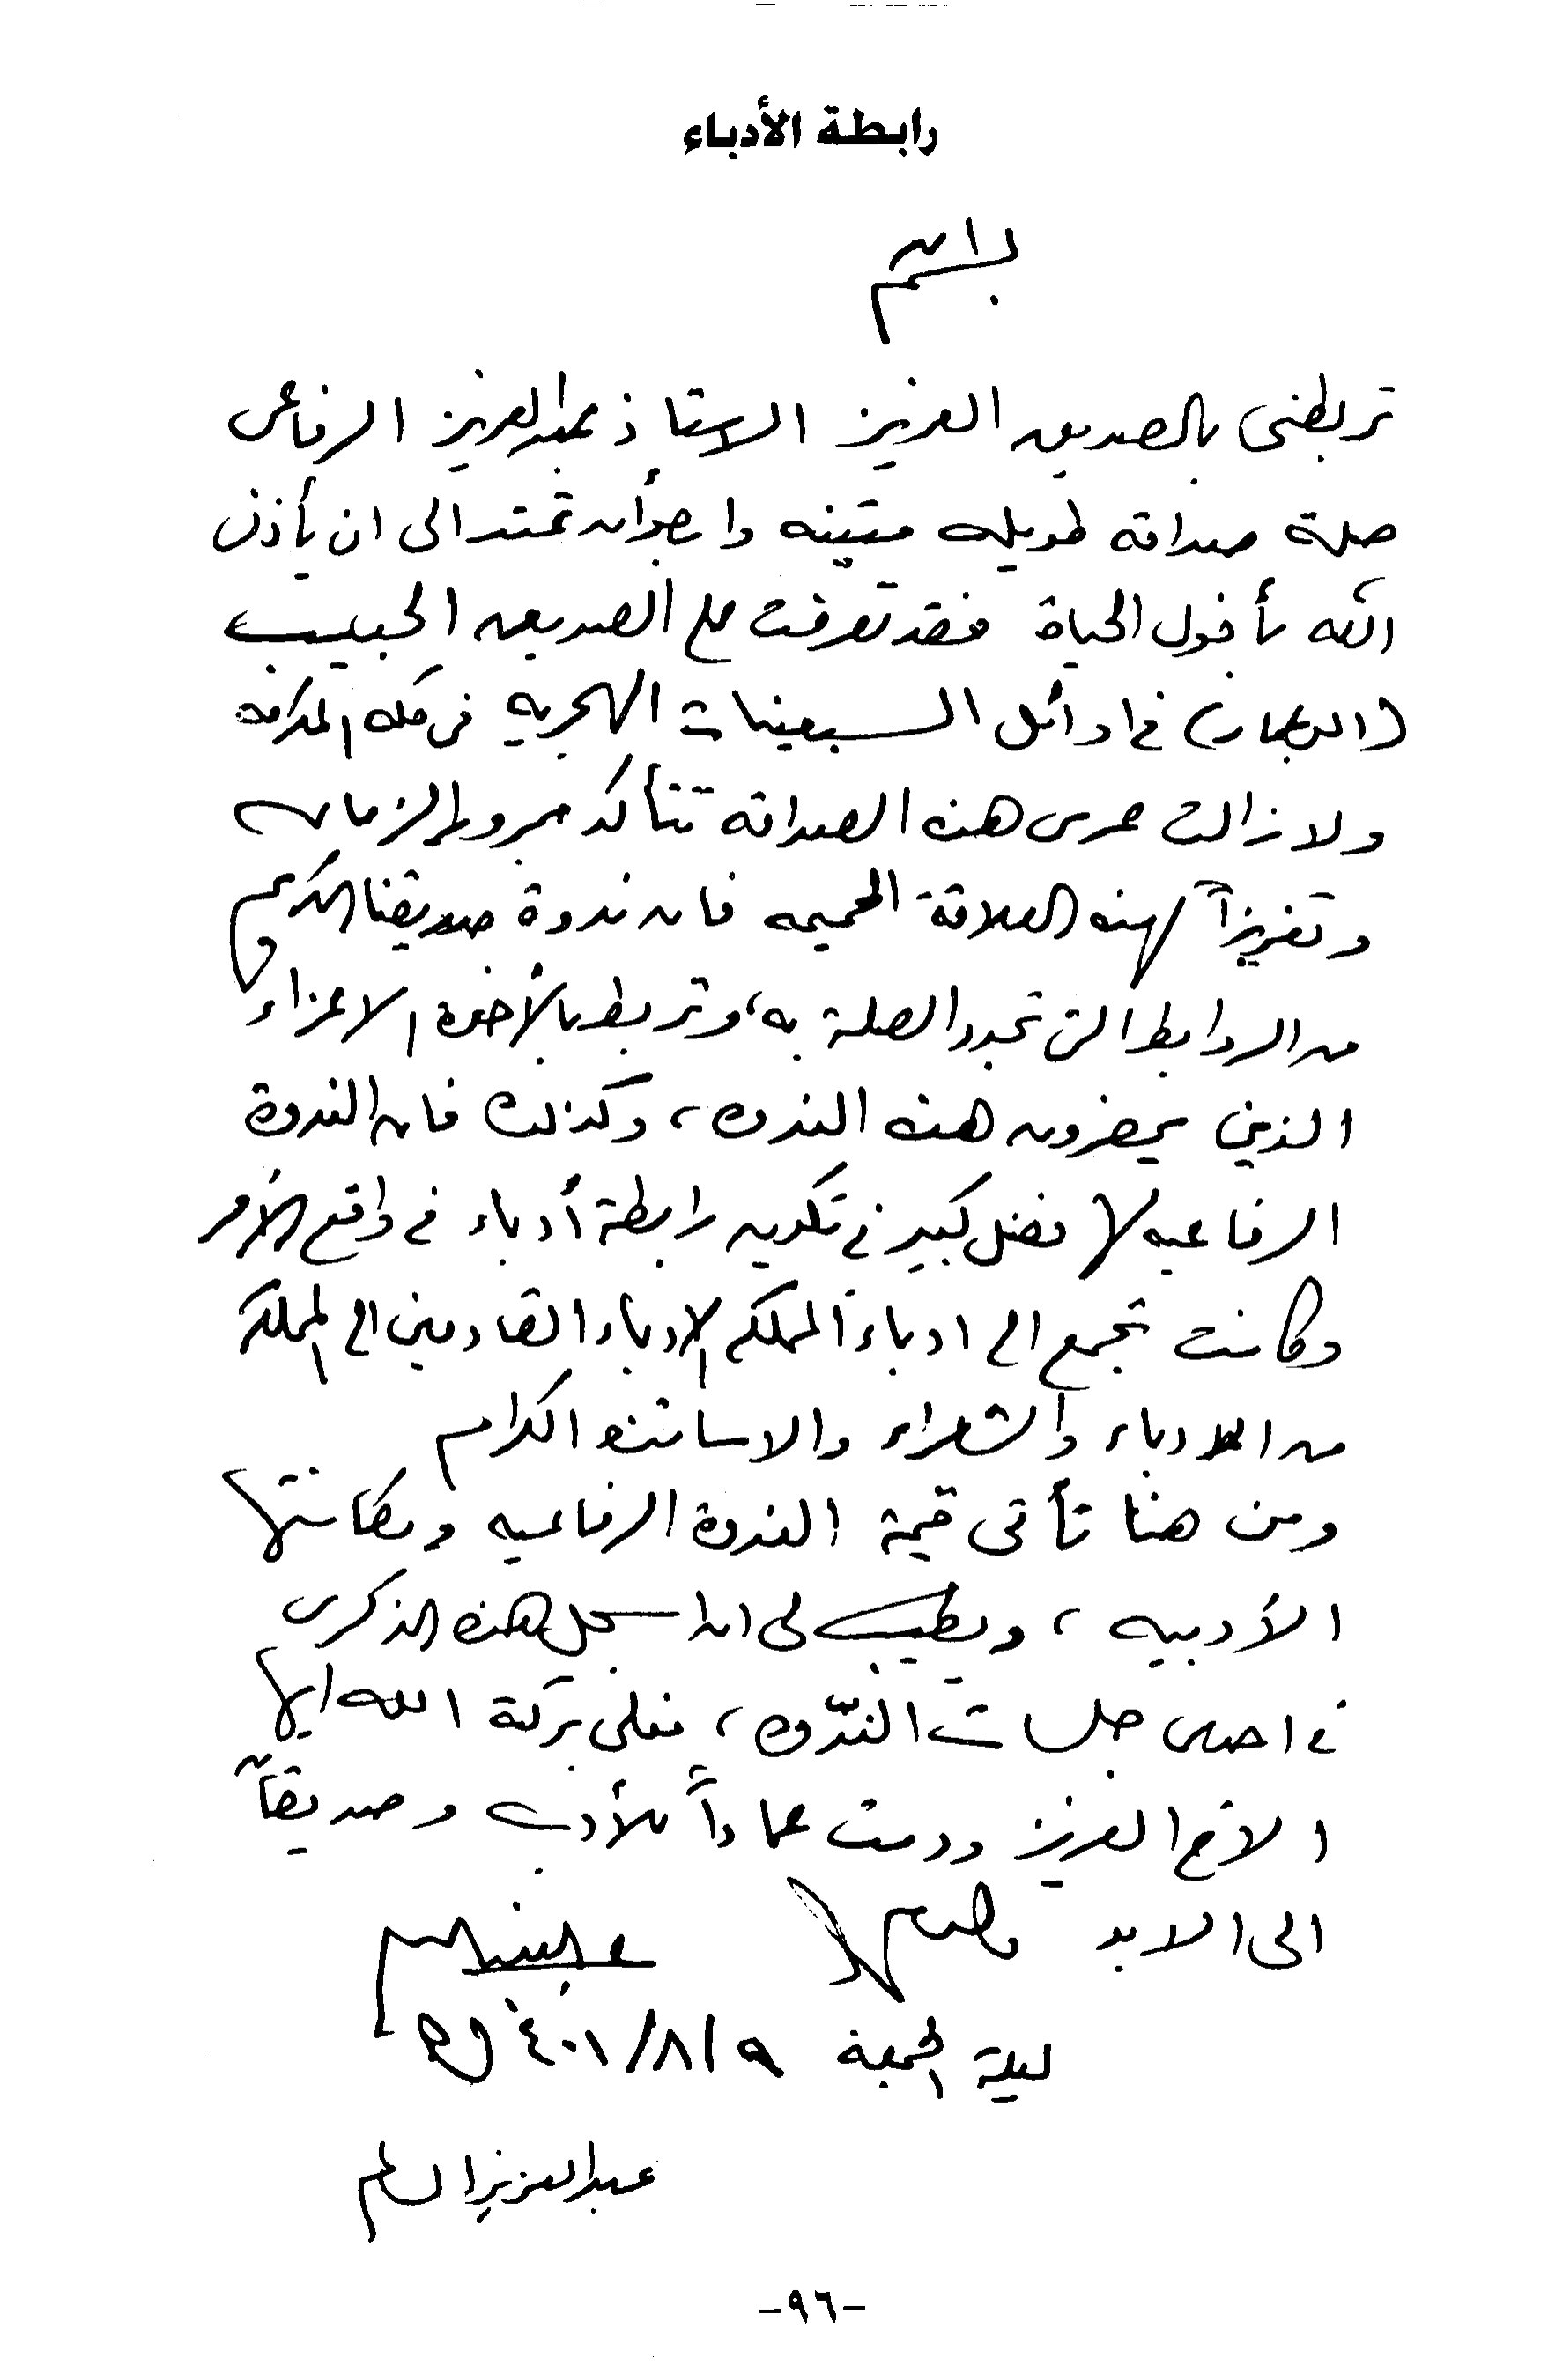 رابطة الأدباء
باسم الله
تربطنى بالصديق العزيز الاستاذ عبدالعزيز الرفاعى
صلة صداقه طويله متينه وارجو أن تمتد الى ان يأذن
الله بأفول الحياة فقد تعرفت على الصديق الحبيب
فى اوائل السبعينات الهجريه فى مكه المكرمه
ولازالت عرى هذه الصداقه تتأكد بمرور الزمان
وتعزيزاً لهذه العلاقة الحميمه فان ندوة صديقنا الكريم
من الروابط التى تجدد الصلة به، وتربط بالأخوه الاعزاء
الذين يحضرون هذه الندوه، وكذلك فان الندوة
الرفاعيه لها فضل كبير فى تكوين رابطة أدباء فى واقع الأمر
وكانت تجمع الى ادباء المملكه الادباء القادمين الى المملكه
من الادباء والشعراء والاساتذه الكرام
ومن هنا تأتى قيمة الندوة الرفاعيه ومكانتها
الأدبيه، ويطيب لى ان اسجل هذه الذكرى
فى احدى جلسات الندوه، فعلى بركة الله ايها
الاخ العزيز ودمت عماداً للأدب وصديقاً
الى الابد
ليلة الجمعة ٩/٨/١٤٠١هـ
عبدالعزيز السالم
-٩٦-